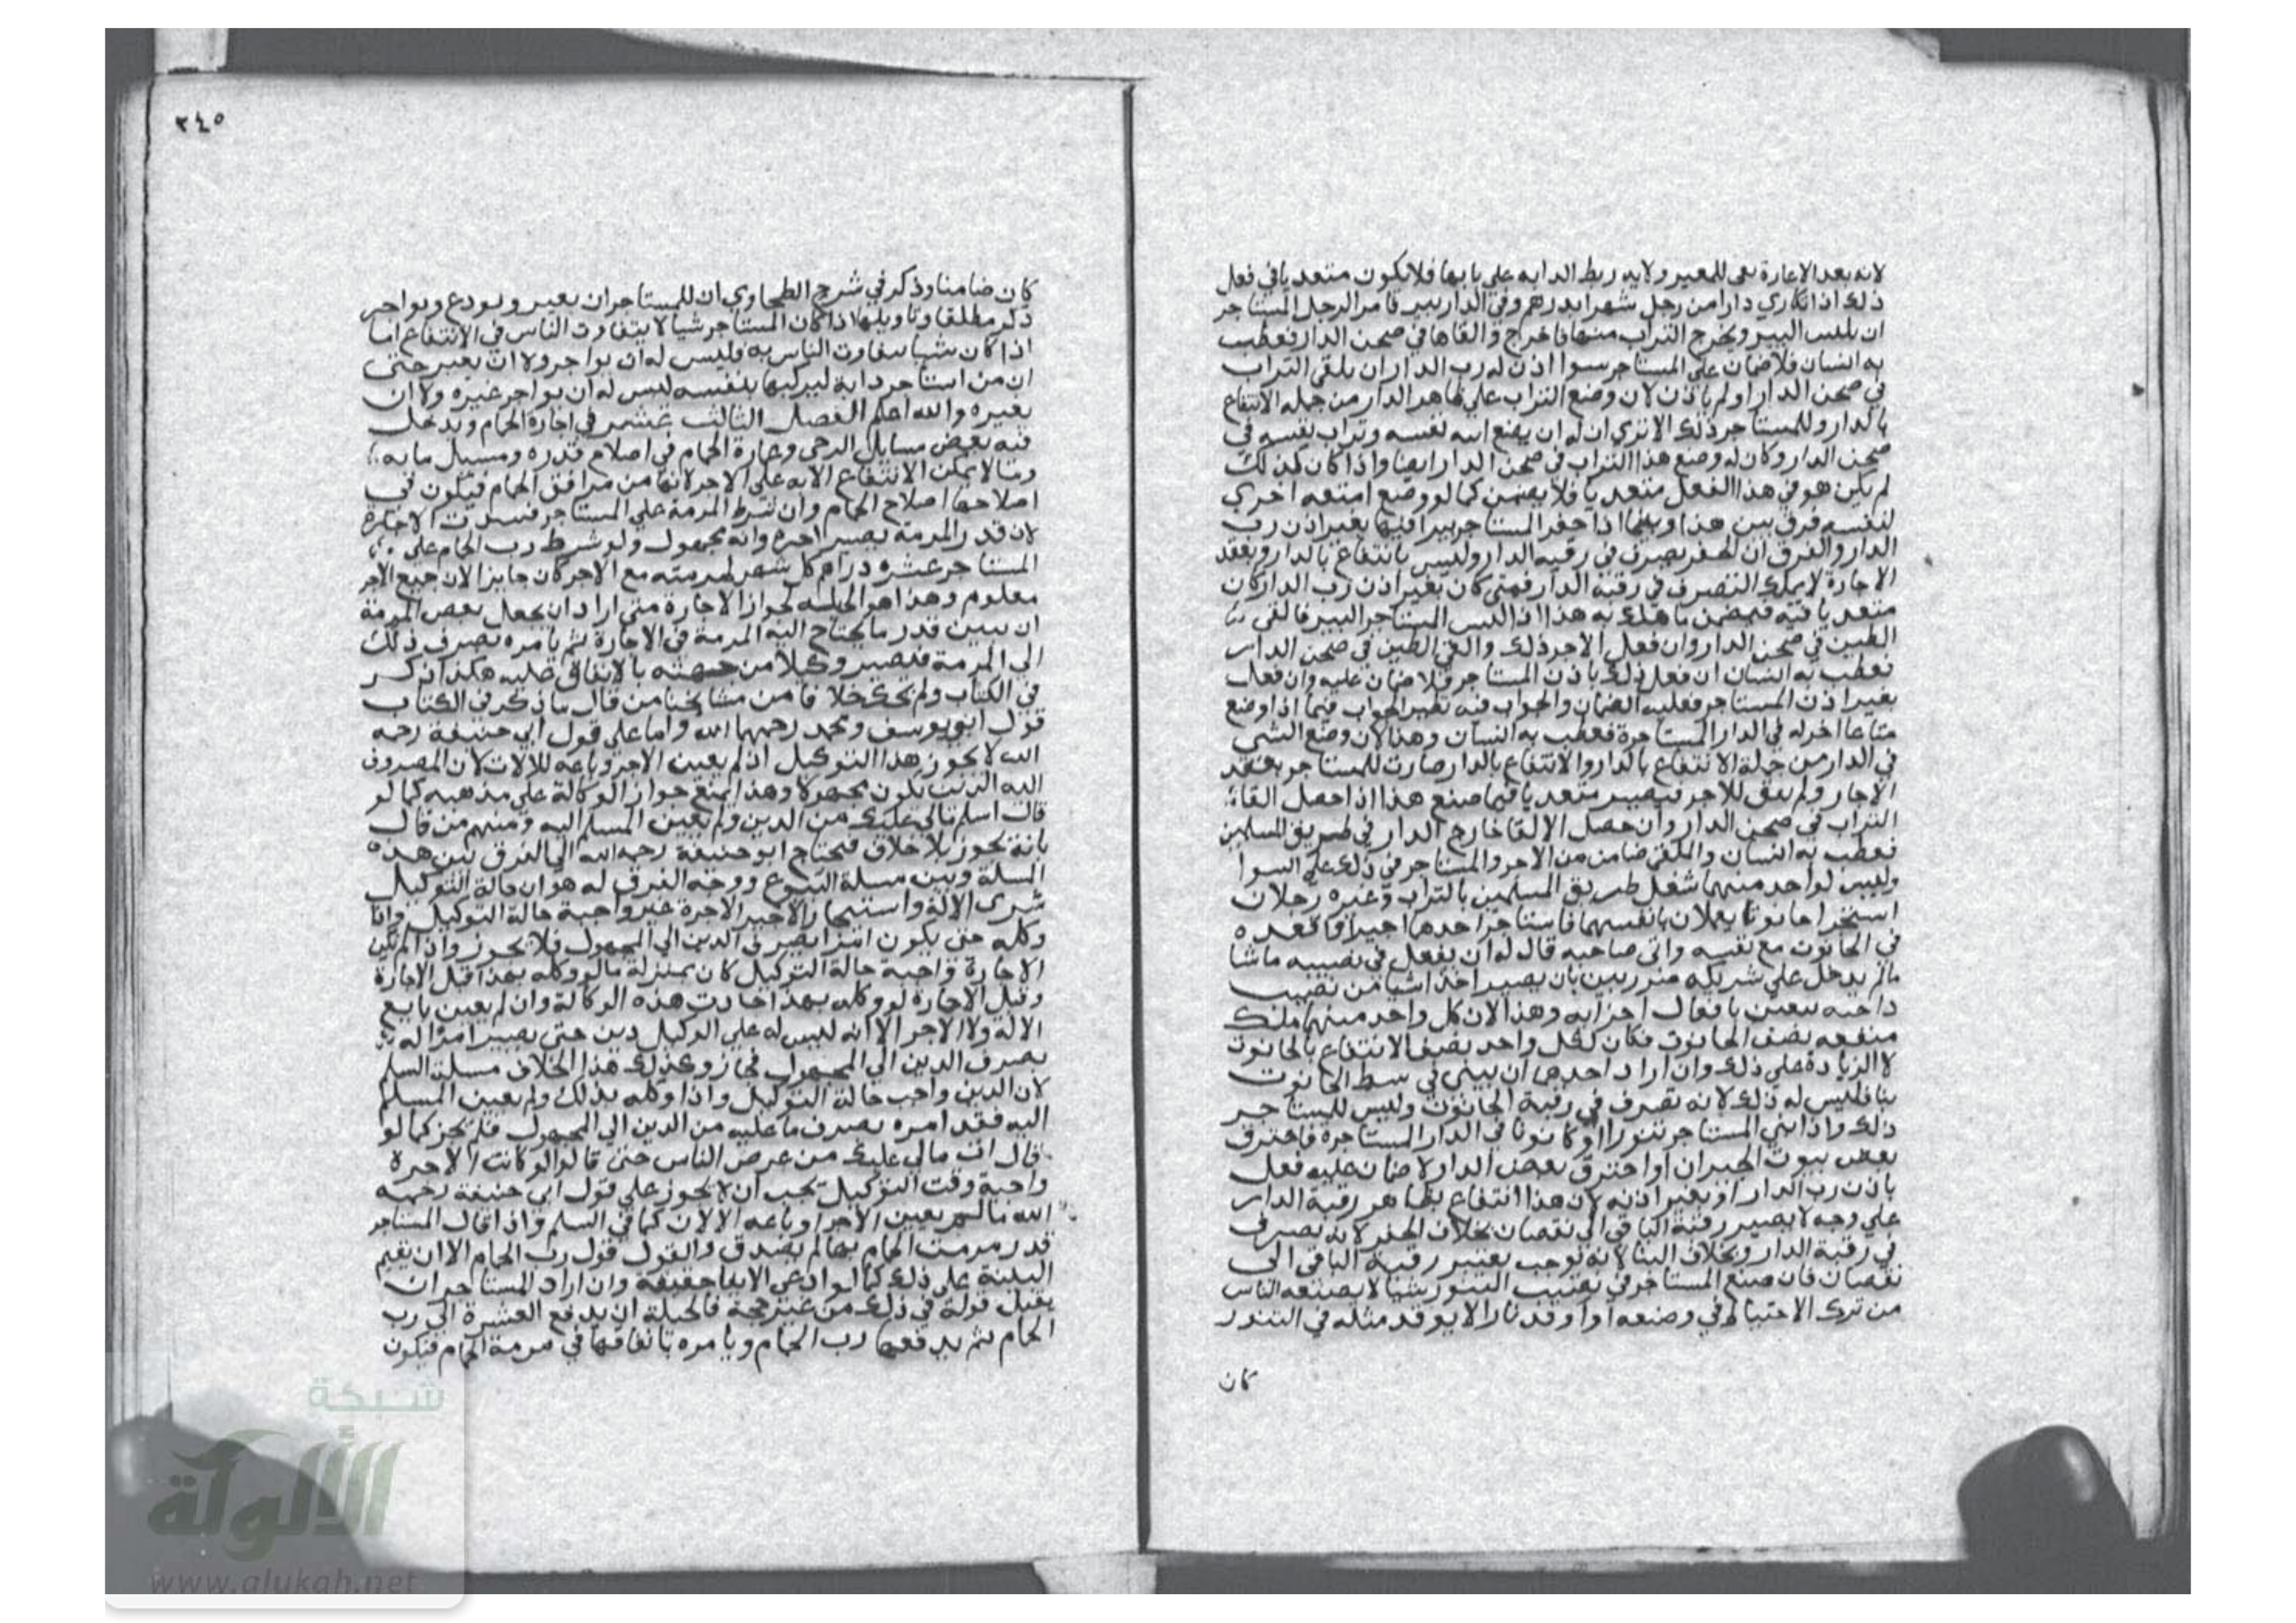 لانه بعد الاعارة بقى للمعير ولاية ربط الدابه على بابها فلا يكون متعديا في فعل
ذلك اذا تكاري دارا من رجل شهرا بدرهم وفي الدار بير فامر الرجل المستاجر
ان يكبس البير ويخرج التراب منها فاخرج والقاها في صحن الدار فعطب
به انسان فلا ضمان على المستاجر سوا اذن له رب الدار ان يلقى التراب
في صحن الدار اولم ياذن لان وضع التراب على ظاهر الدار من جملة الانتفاع
بالدار وللمستاجر ذلك الا ترى ان له ان يضع فيه نفسه وتراب نفسه في
صحن الدار وكان له وضع هذا التراب في صحن الدار ايضا واذا كان كذلك
لم يكن هو في هذا الفعل متعديا فلا يضمن كما لو وضع امتعه اخرى
لنفسه فرق بين هذا وبينما اذا حفر المستاجر بيرا فيها بغير اذن رب
الدار والفرق ان الحفر تصرف في رقبه الدار وليس بانتفاع بالدار وبعقد
الاجارة لا يملك التصرف في رقبة الدار فمتى كان بغير اذن رب الدار كان
متعديا فيه فيضمن ما هلك به هذا اذا كبس المستاجر البير فالقى
الطين في صحن الدار وان فعل الاجر ذلك والقى الطين في صحن الدار
فعطب به انسان ان فعل ذلك باذن المستاجر فلا ضمان عليه وان فعل
بغير اذن المستاجر فعليه الضمان والجواب فيه نظير الجواب فيما اذا وضع
متاعا اخر له في الدار المستاجرة فعطب به انسان وهذا لان وضع الشي
في الدار من جملة الانتفاع بالدار والانتفاع بالدار صارت للمستاجر بعقد
الاجار ولم يبق للاجر فيصير متعديا فيما صنع هذا اذا حصل القاء
التراب في صحن الدار وان حصل الالقا خارج الدار في طريق المسلمين
فعطب به انسان والملقى ضامن من الاجر والمستاجر في ذلك على السوا
وليس لواحد منهما شغل طريق المسلمين بالتراب وغيره رجلان
استاجرا حانوتا يعملان بانفسهما فاستاجر احدهما اجيرا فاقعده
في الحانوت مع نفسه وابى صاحبه قال له ان يفعل في نصيبه ما شا
مالم يدخل على شريكه ضرر بين بان يصير اخذا شيا من نصيب
صاحبه وهذا لان كل واحد منهما ملك
منفعه نصف الحانوت فكان لكل واحد نصف الانتفاع بالحانوت
لا الزيادة على ذلك وان اراد احدهما ان يبني في وسط الحانوت
بنا فليس له ذلك لانه تصرف في رقبة الحانوت وليس للمستاجر
ذلك واذا بنى المستاجر تنورا او كانونا في الدار المستاجرة فاحترق
بعض بيوت الجيران او احترق بعض الدار لا ضمان عليه فعل
باذن رب الدار او بغير اذنه لان هذا انتفاع بظاهر رقبة الدار
على وجه لا يصير رقبة الباقي الى نقصان بخلاف الحفر لانه تصرف
في رقبة الدار وبخلاف البنا لانه توجب بغيير رقبة الباقي الى
نقصان فان صنع المستاجر في نصب التنور شيا لا يصنعه الناس
من ترك الاحتياط في وضعه او اوقد نارا لا يوقد مثله في التنور
كان
٣٤٥
كان ضامنا وذكر في شرح الطحاوي ان للمستاجر ان يعير ويودع ويواجر
ذكر مطلقا وتاويلها اذا كان المستاجر شيا لا يتفاوت الناس في الانتفاع اما
اذا كان شيا يتفاوت الناس به فليس له ان يواجر ولا ان يعير حتى
ان من استاجر دابة ليركبها بنفسه ليس له ان يواجر غيره ولا ان
يعيره والله اعلم الفصل الثالث عشر في اجارة الحمام ويدخل
فيه بعض مسايل الرحى وعمارة الحمام في اصلاح قدره ومسيل مايه
وما لا يمكن الانتفاع الا به على الاجر لانها من مرافق الحمام فيكون في
اصلاحها اصلاح الحمام وان شرط المرمة على المستاجر فسدت الاجارة
لان قدر المرمة يصير اجره وانه مجهول ولو شرط رب الحمام على
المستاجر عشره دراهم كل شهر لمرمته مع الاجر كان جايزا لان جميع الاجر
معلوم وهذا هو الحيلة لجواز الاجارة متى اراد ان يجعل بعض المرمة
ان يبين قدر ما يحتاج اليه المرمة في الاجارة ثم يامره بصرف ذلك
الى المرمة فيصير وكيلا من جهته بالانفاق عليه هكذا ذكر
في الكتاب ولم يحك خلافا من مشايخنا من قال ما ذكر في الكتاب
قول ابي يوسف ومحمد رحمهما الله واما على قول ابي حنيفة رحمه
الله لا يجوز هذا التوكيل اذا لم يعين الاجر وباعه الالات لان المصروف
اليه الدين يكون مجهولا وهذا يمنع جواز الوكالة على مذهبه كما لو
قال اسلم مالي عليك من الدين ولم يعين المسلم اليه ومنهم من قال
بانه يجوز بلا خلاف فيحتاج ابو حنيفة رحمه الله الى الفرق بين هذه
المسلة وبين مسلة البيوع ووجه الفرق له هو ان حالة التوكيل
شرى الالة واستيجار الاجير الاجرة غير واجبة حالة التوكيل واذا
وكله حتى يكون امرا بصرف الدين الى المجهول فلا يجوز واذا لم تكن
الاجارة واجبة حالة التوكيل كان بمنزلة ما لو وكله بهذا قبل الاجارة
وقبل الاجارة لو وكله بهذا جازت هذه الوكالة وان لم يعين بايع
الالة ولا الاجر الا انه ليس له على الوكيل دين حتى يصير امرا له
بصرف الدين الى المجهول فجاز وكذلك هذا الخلاف مسلة السلم
لان الدين واجب حالة التوكيل واذا وكله بذلك ولم يعين المسلم
اليه فقد امره بصرف ما عليه من الدين الى المجهول فلم يجز كما لو
قال ان مالي عليك من عرض الناس حتى قالوا لو كانت الاجرة
واجبة وقت التوكيل يجب ان لا يجوز على قول ابي حنيفة رحمه
الله مالم يعين الاجر او باعه الالات كما في السلم واذا قال المستاجر
قد رممت الحمام بها لم يصدق والقول قول رب الحمام الا ان يقيم
البينة على ذلك كما لو ادعى الايفا حقيقة وان اراد المستاجر ان
يقبل قوله في ذلك من غير حجة فالحيلة ان يدفع العشرة الى رب
الحمام ثم يدفعها رب الحمام ويامره بانفاقها في مرمة الحمام فيكون
شبكة
الألوكة
www.alukah.net